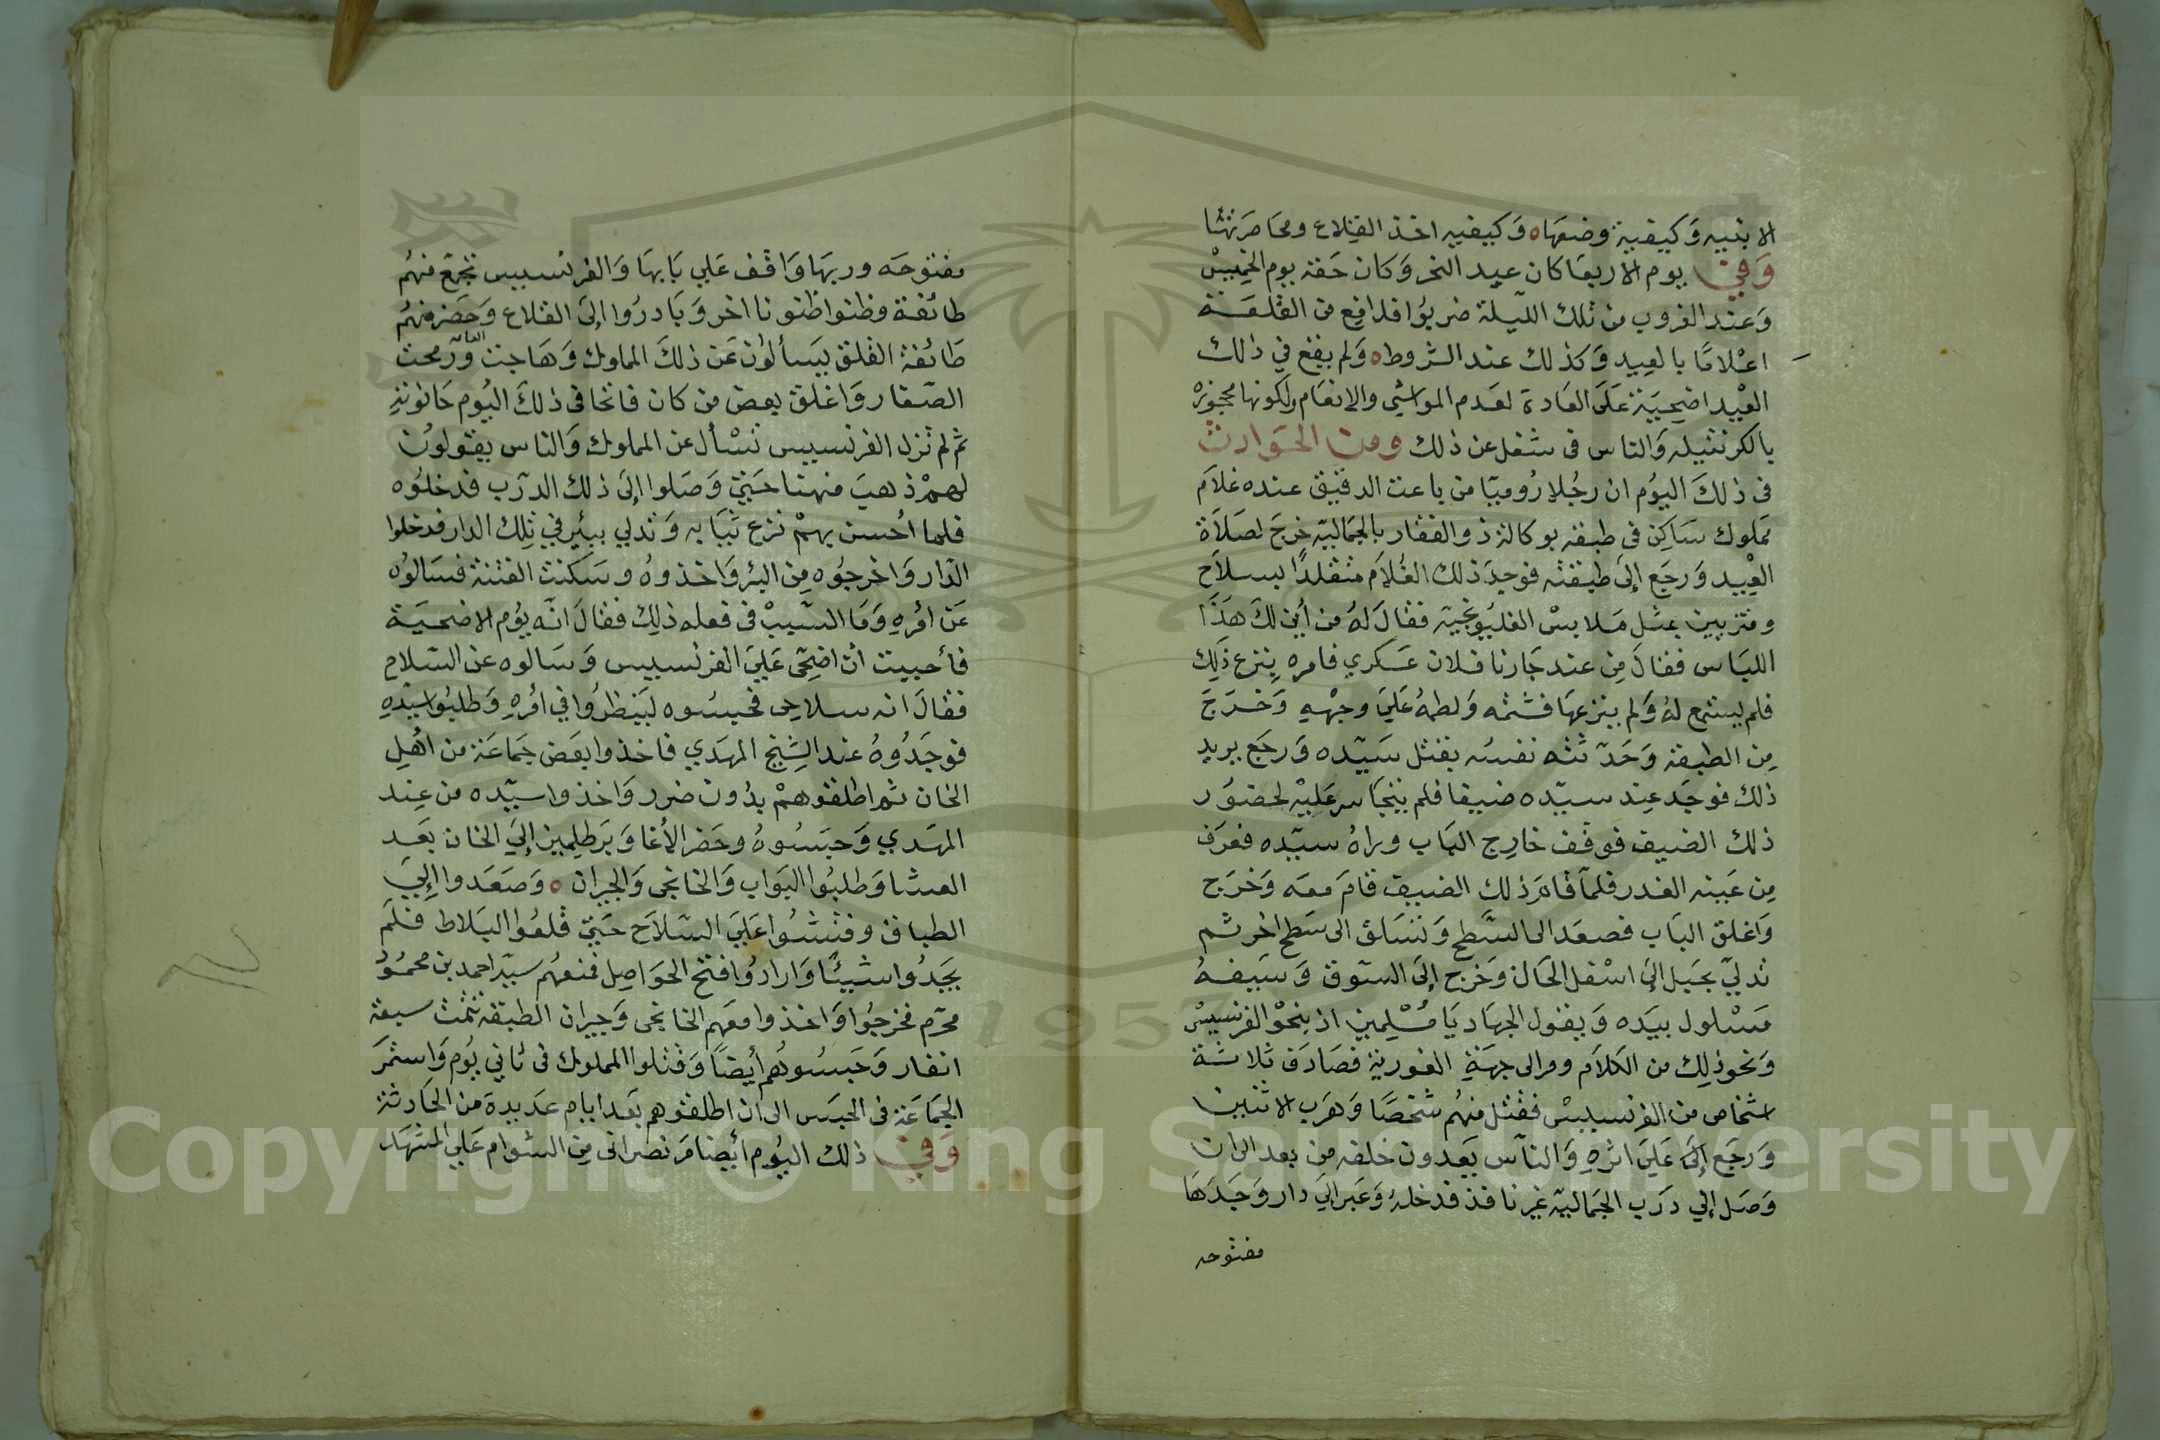 الابنيه وكيفية وضعها ه وكيفيه اخذ القلاع ومحاصرتها
وفي يوم الاربعا كان عيد النحر وكان حقه يوم الخميس
وعند الغروب من تلك الليلة ضربوا مدافع من القلعة
اعلاما بالعيد وكذلك عند الشروط ه ولم يقع في ذلك
العيد اضحيية على العادة لعدم المواشي والانعام ولكونها محجوزه
بالكرنتيله والناس في شغل عن ذلك ومن الحوادث
في ذلك اليوم ان رجلا روميا من باعت الدقيق عنده غلام
مملوك ساكن في طبقه بوكالة ذو الفقار بالجماليه خرج لصلاة
العيد ورجع إلى طبقته فوجد ذلك الغلام متقلدا بسلاح
ومتزيين بمثل ملابس القليونجية فقال له من أين لك هذا
اللباس فقال من عند جارنا فلان عسكري فامره بنزع ذلك
فلم يستمع له ولم ينزعها فشتمه ولطمه على وجهه وخرج
من الطبقه وحدثته نفسه بقتل سيده ورجع يريد
ذلك فوجد عند سيده ضيفا فلم يتجاسر عليه لحضور
ذلك الضيف فوقف خارج الباب وراه سيده فعرف
من عينه الغدر فلما قام ذلك الضيف قام معه وخرج
واغلق الباب فصعد الى السطح وتسلق الى سطح اخر ثم
تدلي بحبل إلى اسفل الخان وخرج إلى السوق وسيفه
مسلول بيده ويقول الجهاد يا مسلمين اذبحوا الفرنسيس
ونحو ذلك من الكلام ومر الى جهة الغورية فصادف ثلاثة
اشخاص من الفرنسيس فقتل منهم شخصا وهرب الاثنين
ورجع إلى على اثره والناس يعدون خلفه من بعد الى ان
وصل إلى درب الجماليه غير نافذ فدخله وعبر الي دار وجدها
مفتوحه
مفتوحه وربها واقف علي بابها والفرنسيس تجمع منهم
طائفة وظنوا ظنونا اخر وبادروا إلى القلاع وحضر منهم
طائفة القلق يسألون عن ذلك المملوك وهاجت العامة ورمحت
الصغار واغلق بعض من كان فاتحا في ذلك اليوم حانوته
ثم لم تزل الفرنسيس تسأل عن المملوك والناس يقولون
لهم ذهب من هنا حتى وصلوا إلى ذلك الدرب فدخلوه
فلما أحس بهم نزع ثيابه وتدلي ببئر في تلك الدار فدخلوا
الدار واخرجوه من البئر واخذوه وسكنت الفتنة فسالوه
عن امره وما السبب في فعله ذلك فقال انه يوم الاضحية
فأحببت أن اضحى على الفرنسيس وسالوه عن السلاح
فقال انه سلاحى فحبسوه لينظروا في امره وطلبوا سيده
فوجدوه عند الشيخ المهدي فاخذوا بعض جماعة من اهل
الخان ثم اطلقوهم بدون ضرر واخذوا سيده من عند
المهدي وحبسوه وحضر الأغا وبرطلمين إلى الخان بعد
العشا وطلبوا البواب والخانجى والجيران ه وصعدوا إلى
الطباق وفتشوا على السلاح حتى قلعوا البلاط فلم
يجدوا شيئا وارادوا فتح الحواصل فمنعهم سيد احمد بن محمود
محرم فخرجوا واخذوا معهم الخانجى وجيران الطبقه تتمت سبعة
انفار وحبسوهم أيضا وقتلوا المملوك في ثاني يوم واستمر
الجماعة في الحبس الى ان اطلقوهم بعد ايام عديدة من الحادثة
وفي ذلك اليوم أيضا مر نصرانى من الشوام علي المشهد
Copyright © King Saud University
1957